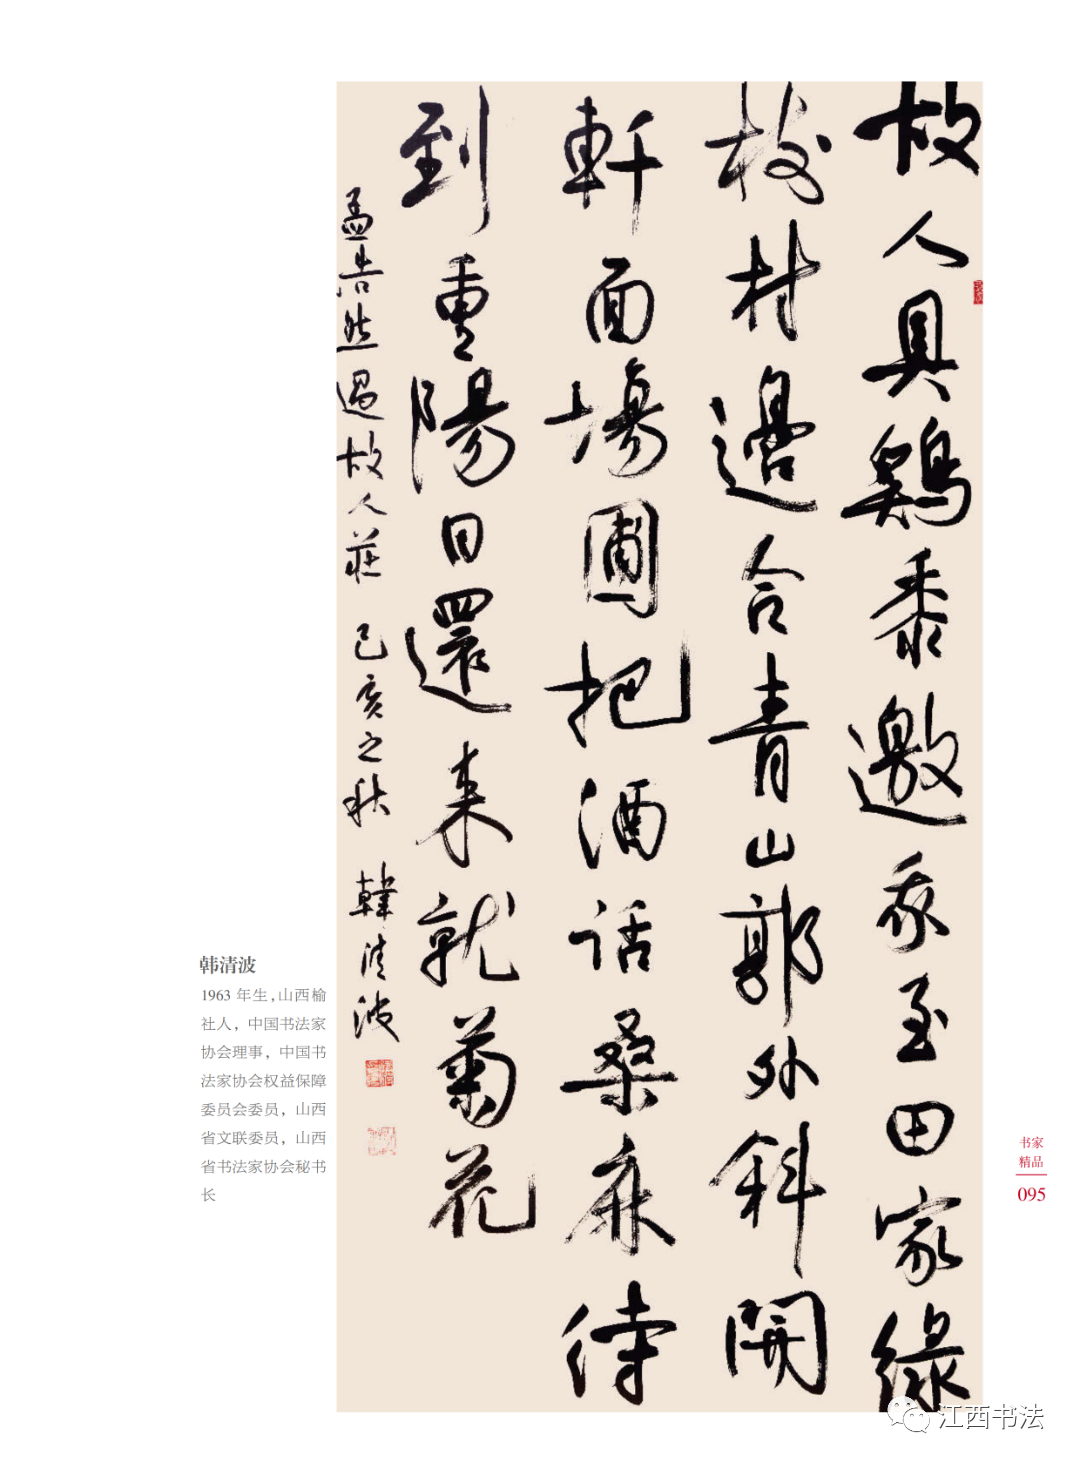 故人具鷄黍邀我至田家緑
樹村邊合青山郭外斜開
軒面場圃把酒話桑麻待
到重陽日還来就菊花
孟浩然過故人莊 己亥之秋 韓清波
韩清波
1963 年生，山西榆
社人，中国书法家
协会理事，中国书
法家协会权益保障
委员会委员，山西
省文联委员，山西
省书法家协会秘书
长
书家
精品
095
江西书法